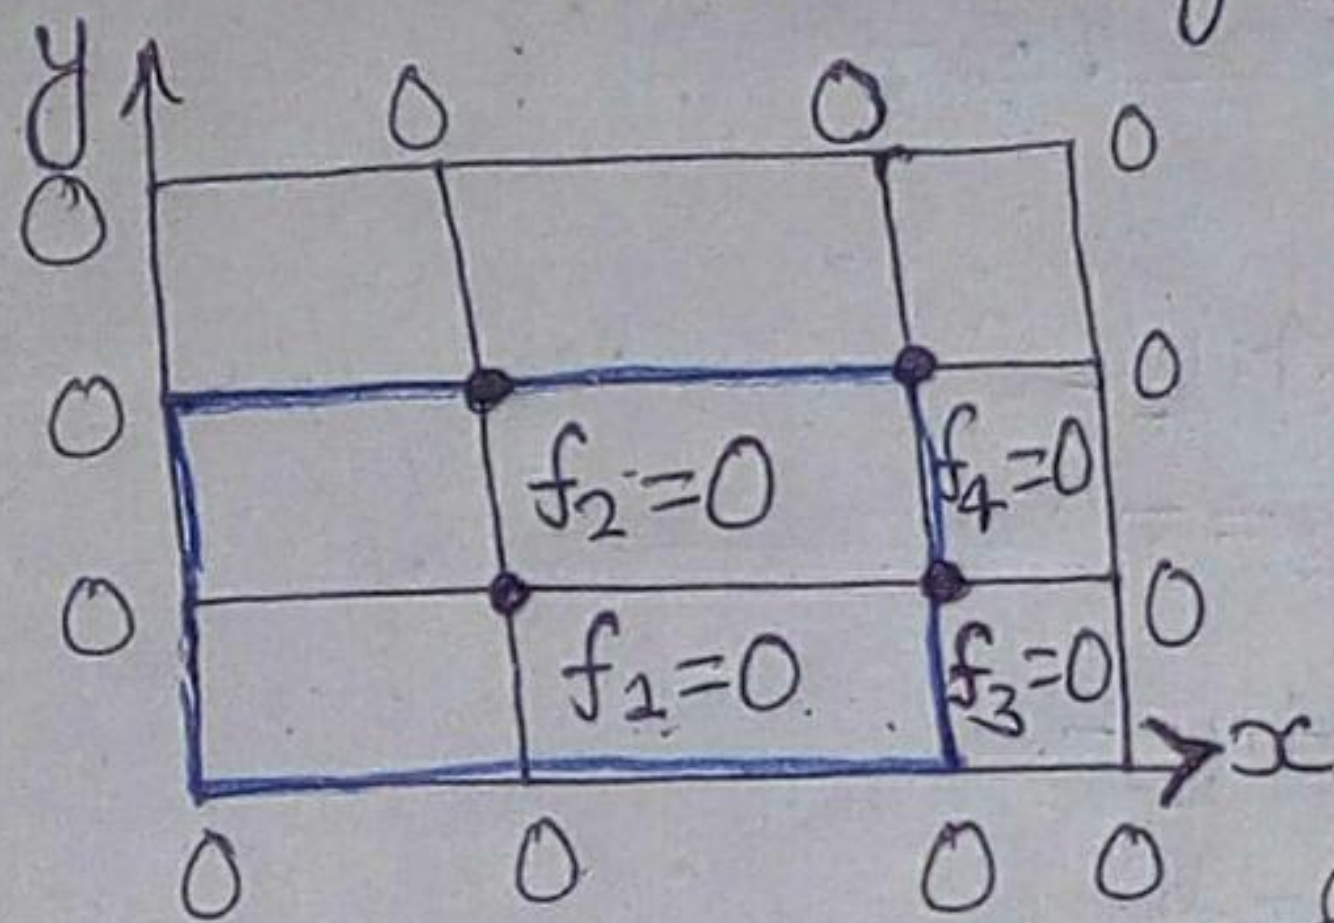 y
0 0 0
0
0 0
f₂=0 f₄=0
0 0
f₁=0 f₃=0
x
0 0 0 0